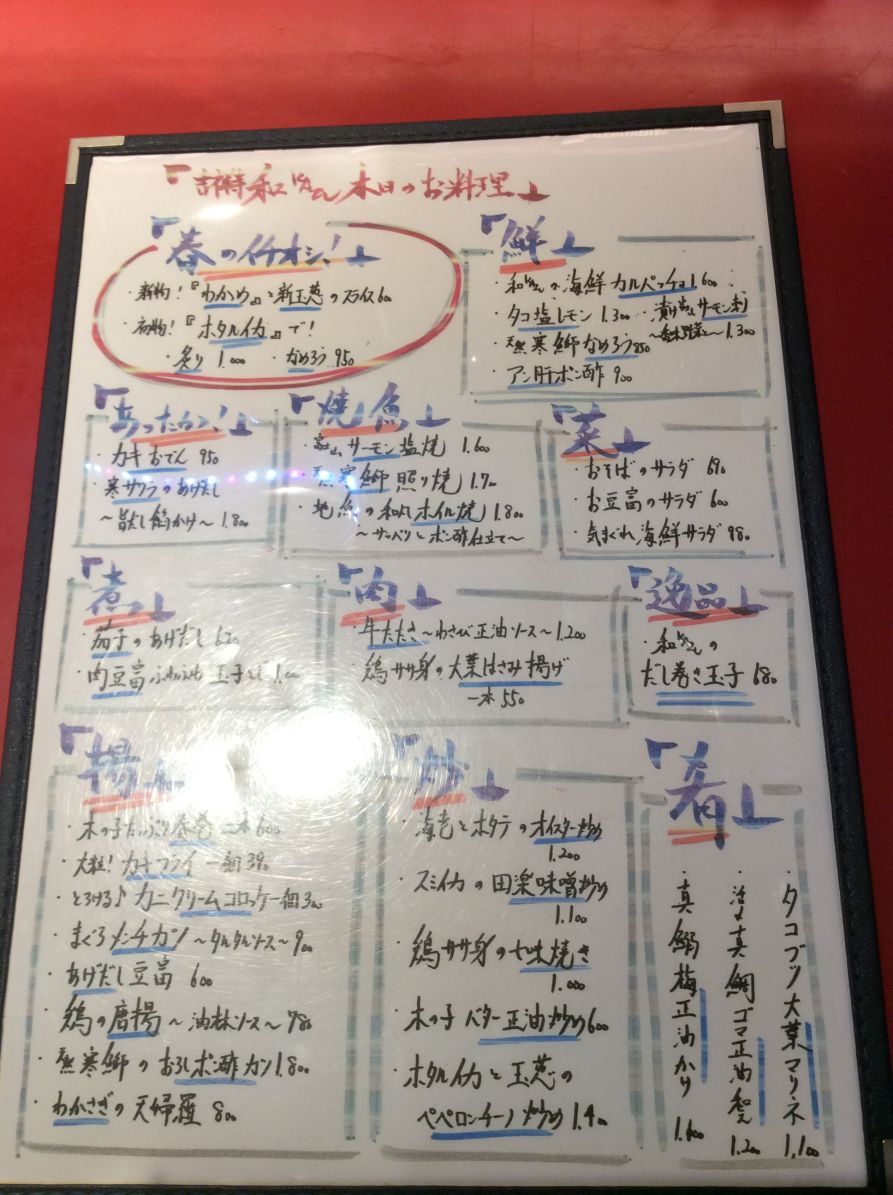 本日のお料理」
「春のイチオシ!」
・新物!『わかめ』と新玉葱のスライス600
・初物!『ホタルイカ』で!
・炙り 1.000 ・なめろう 950
「鮮」
・海鮮カルパッチョ1.600
・タコ塩レモン 1.300 ・サーモン刺
1.300
・天然寒鰤なめろう850
・アン肝ポン酢 900
「あったかつ!」
・カキおでん 950
・寒サワラのあげだし
〜旨だし餡かけ〜 1.800
「焼魚」
・富士山サーモン塩焼 1.600
・天然寒鰤照り焼 1.700
・地魚の和風ホイル焼 1.800
〜サッパリとポン酢仕立て〜
「菜」
・おそばのサラダ 690
・お豆富のサラダ 600
・気まぐれ海鮮サラダ 980
「煮」
・茄子のあげだし 620
・肉豆富 玉子とじ
「肉」
・牛たたき〜わさび正油ソース〜1.200
・鶏ササ身の大葉はさみ揚げ
一本 550
「逸品」
・だし巻き玉子 680
「揚」
・木の子たっぷり春巻 二本 600
・大粒!カキフライ 一個 390
・とろける♪カニクリームコロッケ一個
・まぐろメンチカツ〜タルタルソース〜900
・あげだし豆富 600
・鶏の唐揚〜油淋ソース〜980
・天然寒鰤のおろしポン酢カツ1.800
・わかさぎの天婦羅 800
「炒」
・海老とホタテのオイスター炒め
1.200
・スミイカの田楽味噌炒め
1.100
・鶏ササ身の七味焼き
1.000
・木の子バター正油炒め600
・ホタルイカと玉葱の
ペペロンチーノ炒め 1.400
「肴」
・タコブツ大葉マリネ 1.100
・真鯛ゴマ正油和え 1.200
・真鯛梅正油かり